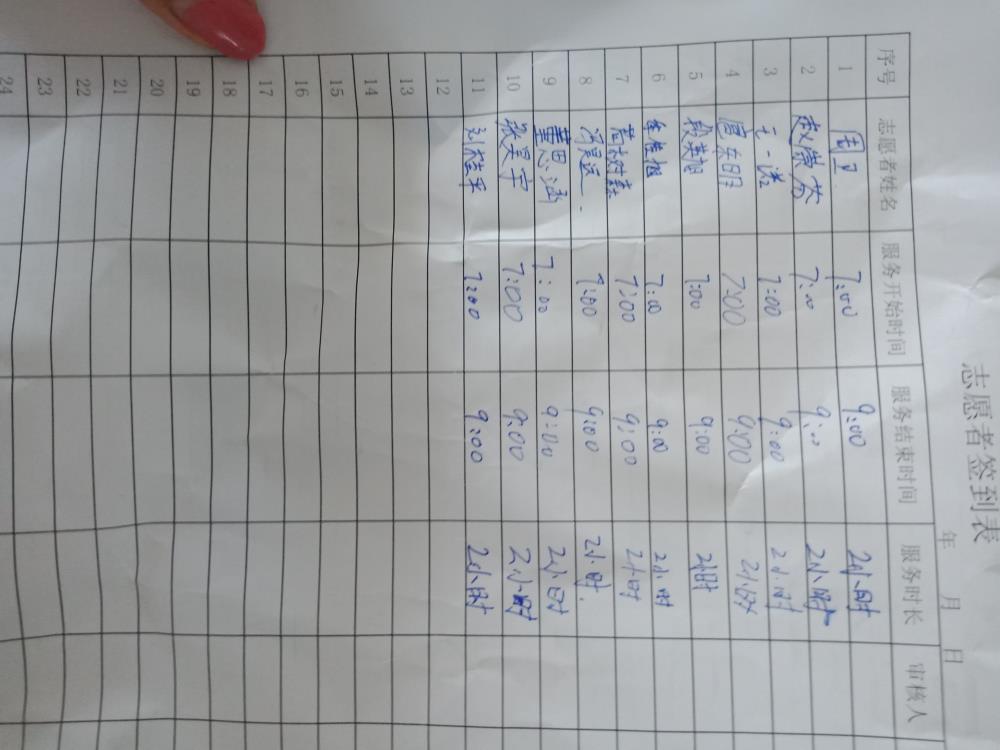 志愿者签到表
年 月 日
序号 志愿者姓名 服务开始时间 服务结束时间 服务时长 审核人
1 周卫 7:00 9:00 2小时
2 赵崇芬 7:00 9:00 2小时
3 王一涵 7:00 9:00 2小时
4 唐东明 7:00 9:00 2小时
5 段英旭 7:00 9:00 2小时
6 7:00 9:00 2小时
7 7:00 9:00 2小时
8 冯昊远 7:00 9:00 2小时.
9 董思涵 7:00 9:00 2小时
10 张昊宇 7:00 9:00 2小时
11 刘桂平 7:00 9:00 2小时
12
13
14
15
16
17
18
19
20
21
22
23
24